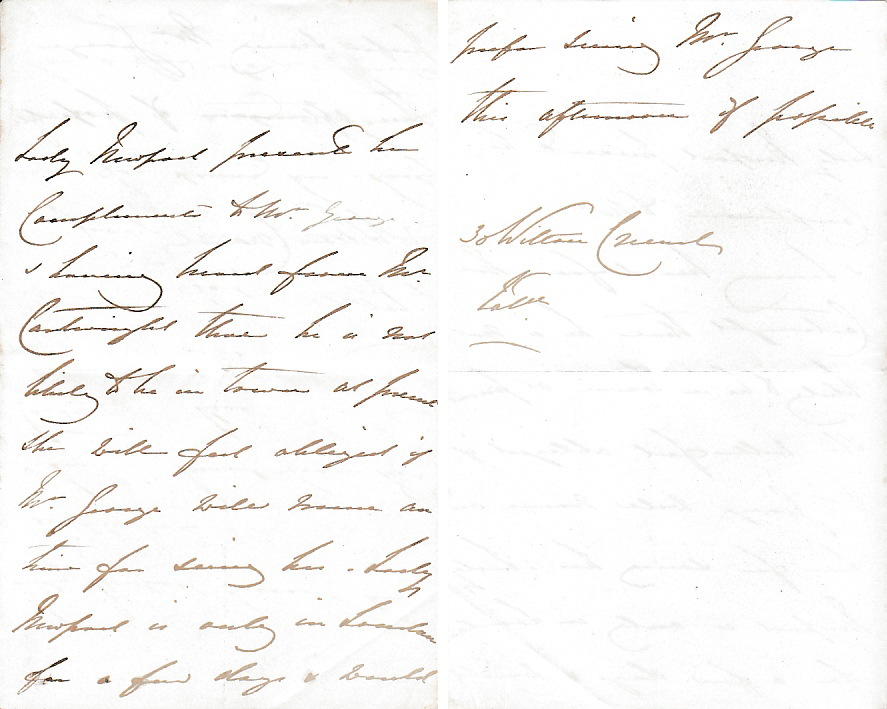 Lady Newport presents her
Compliments to Mr. George
& having heard from Mr.
Cartwright that he is not
likely to be in town at present
she will feel obliged if
Mr. George will name an
time for seeing her. Lady
Newport is only in London
for a few days & would
prefer seeing Mr. George
this afternoon if possible
30 Wilton Crescent